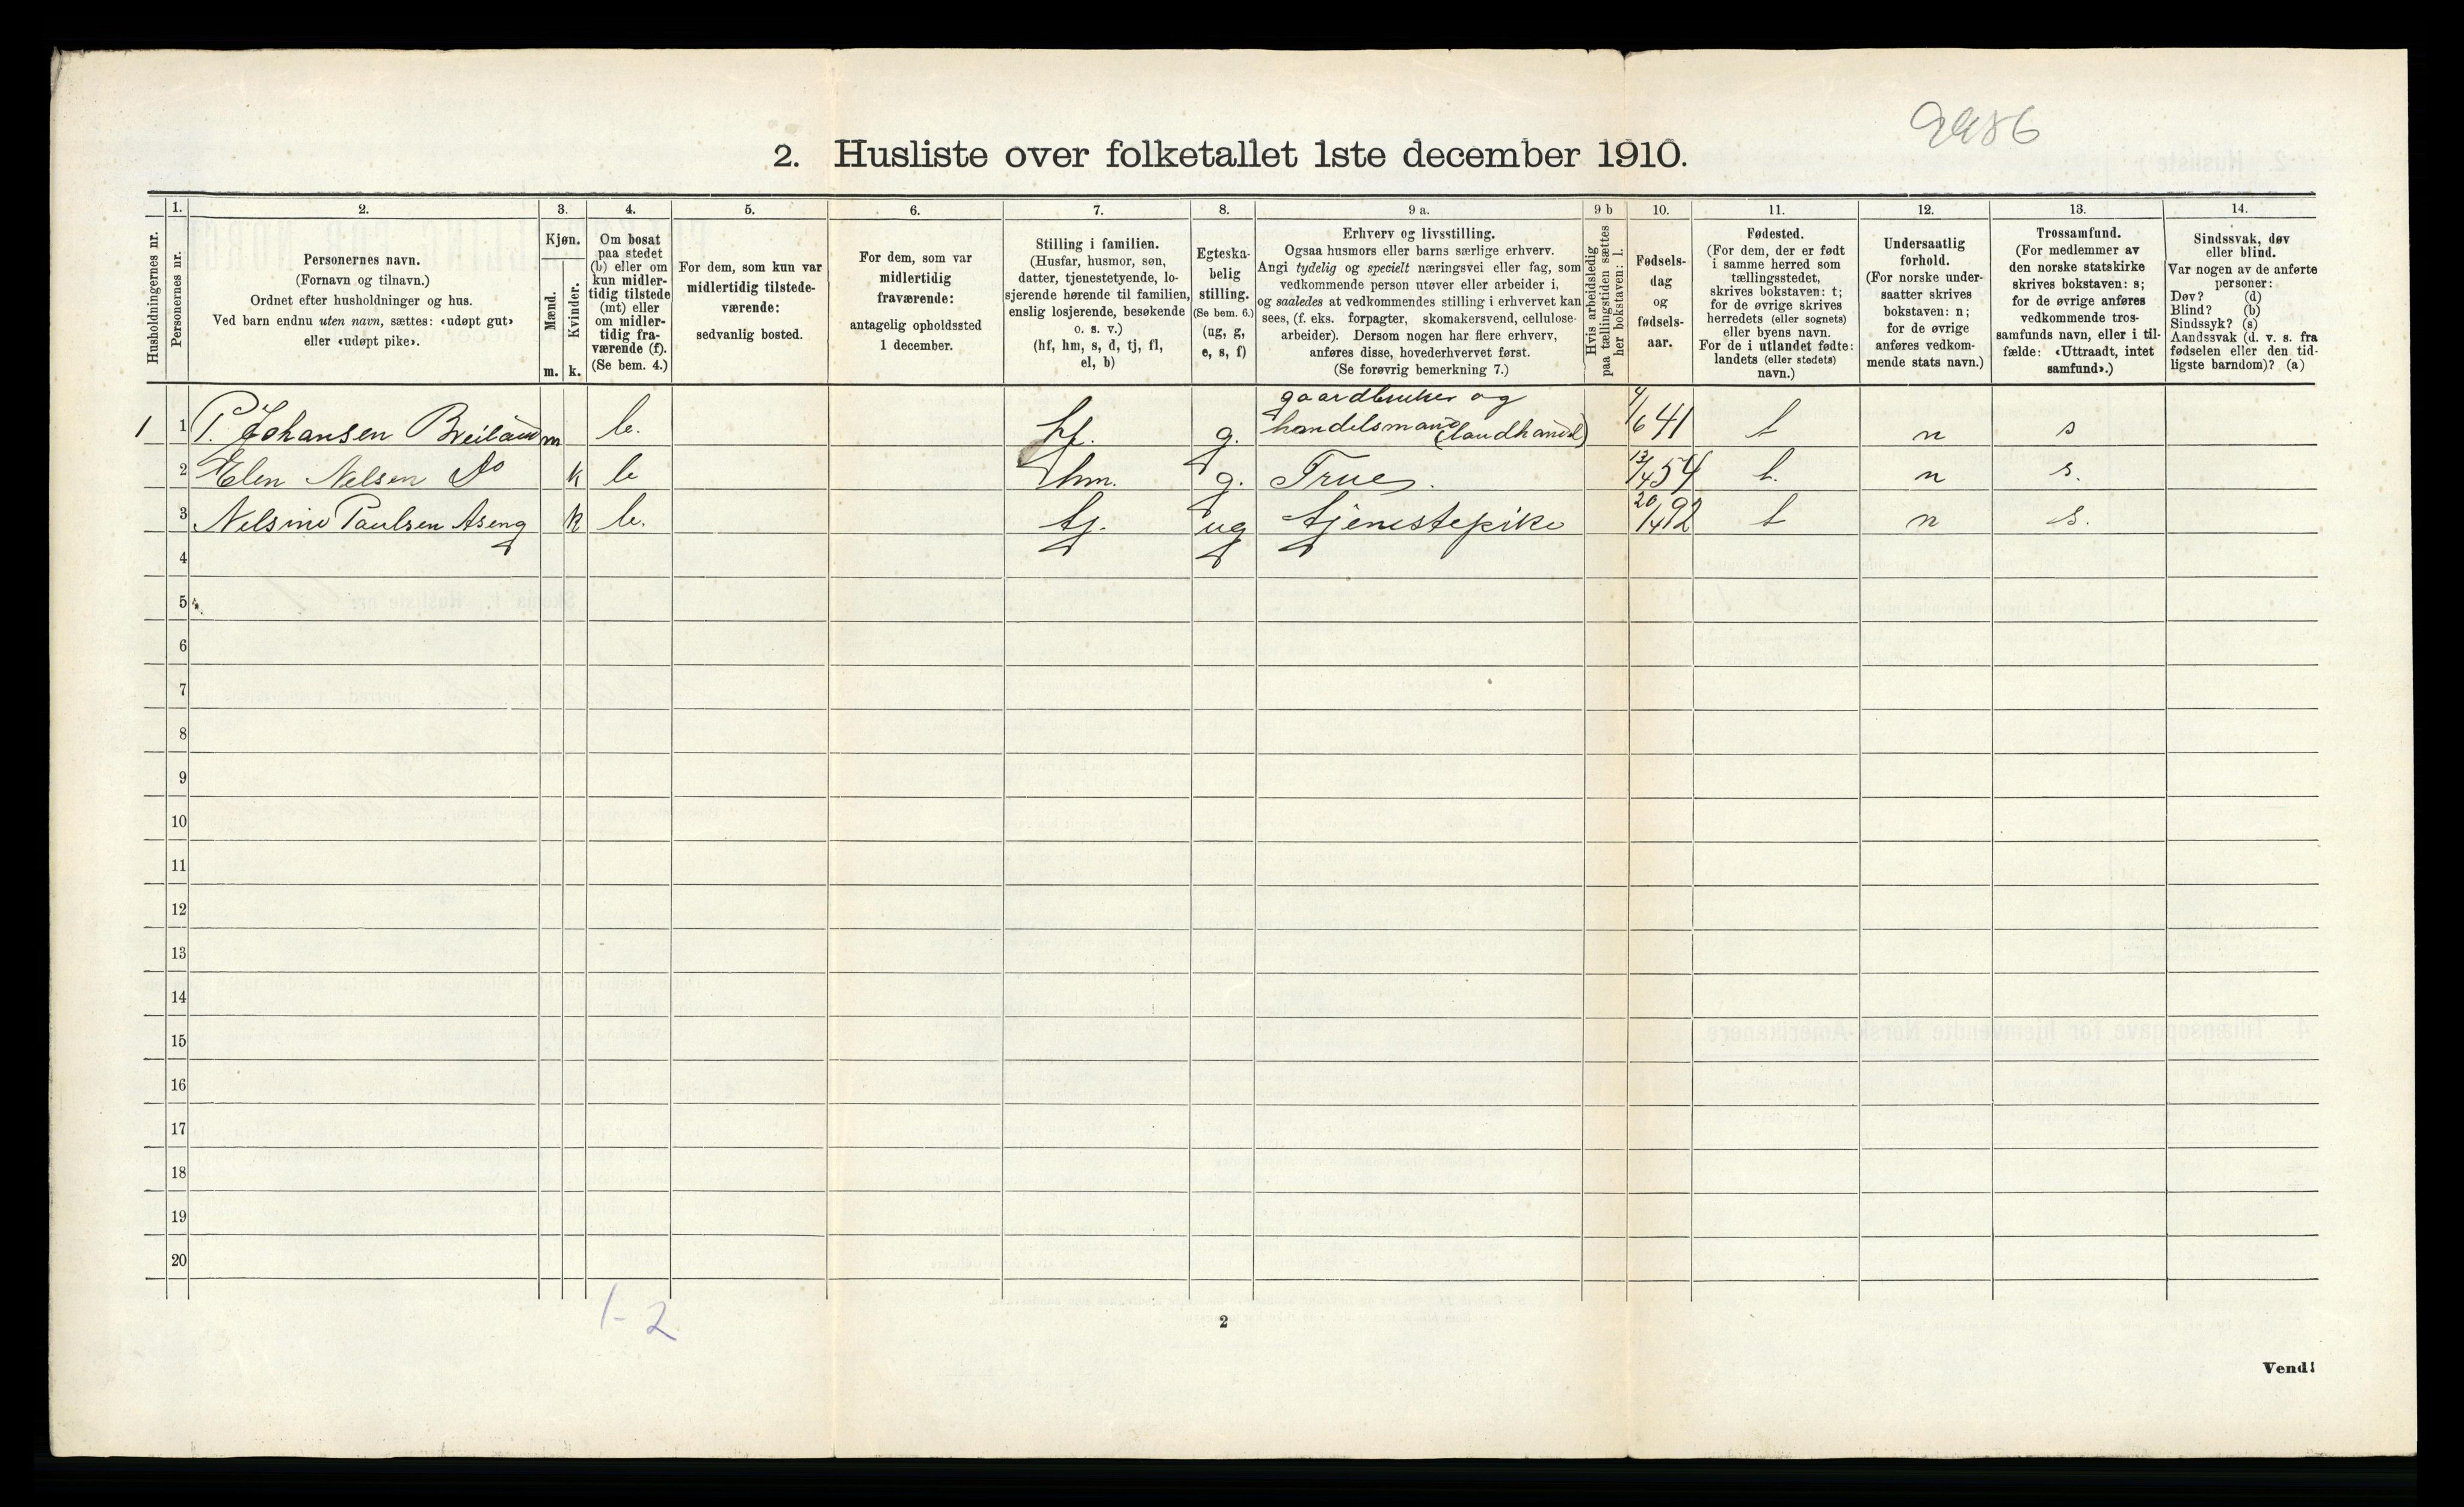 9986
2. Husliste over folketallet 1ste december 1910.
Husholdningernes nr.
1.
Personernes nr.
2.
Personernes navn.
(Fornavn og tilnavn.)
Ordnet efter husholdninger og hus.
Ved barn endnu uten navn, sættes: «udøpt gut»
eller «udøpt pike».
3.
Kjøn.
Mænd.
Kvinder.
m. k.
4.
Om bosat
paa stedet
(b) eller om
kun midler-
tidig tilstede
(mt) eller
om midler-
tidig fra-
værende (f).
(Se bem. 4.)
5.
For dem, som kun var
midlertidig tilstede-
værende:
sedvanlig bosted.
6.
For dem, som var
midlertidig
fraværende:
antagelig opholdssted
1 december.
7.
Stilling i familien.
(Husfar, husmor, søn,
datter, tjenestetyende, lo-
sjerende hørende til familien,
enslig losjerende, besøkende
o. s. v.)
(hf, hm, s, d, tj, fl,
el, b)
8.
Egteska-
belig
stilling.
(Se bem. 6.)
(ug, g,
e, s, f)
9 a.
Erhverv og livsstilling.
Ogsaa husmors eller barns særlige erhverv.
Angi tydelig og specielt næringsvei eller fag, som
vedkommende person utøver eller arbeider i,
og saaledes at vedkommendes stilling i erhvervet kan
sees, (f. eks. forpagter, skomakersvend, cellulose-
arbeider). Dersom nogen har flere erhverv,
anføres disse, hovederhvervet først.
(Se forøvrig bemerkning 7.)
9 b
Hvis arbeidsledig
paa tællingstiden sættes
her bokstaven: l.
10.
Fødsels-
dag
og
fødsels-
aar.
11.
Fødested.
(For dem, der er født
i samme herred som
tællingsstedet,
skrives bokstaven: t;
for de øvrige skrives
herredets (eller sognets)
eller byens navn.
For de i utlandet fødte:
landets (eller stedets)
navn.)
12.
Undersaatlig
forhold.
(For norske under-
saatter skrives
bokstaven: n;
for de øvrige
anføres vedkom-
mende stats navn.)
13.
Trossamfund.
(For medlemmer av
den norske statskirke
skrives bokstaven: s;
for de øvrige anføres
vedkommende tros-
samfunds navn, eller i til-
fælde: «Uttraadt, intet
samfund».)
14.
Sindssvak, døv
eller blind.
Var nogen av de anførte
personer:
Døv? (d)
Blind? (b)
Sindssyk? (s)
Aandssvak (d. v. s. fra
fødselen eller den tid-
ligste barndom)? (a)
1 1 P. Johansen Breiland m b. hf. g. gaardbruker og
handelsmand (landhandel) 4/6 41 t n s
2 Elen Nelsen Do k b hm. g. Frue. 13/4 54 t. n s.
3 Nelsine Paulsen Aseng k b. tj. ug tjenestepike 20/4 92 t n s.
4
5
6
7
8
9
10
11
12
13
14
15
16
17
18
19
20
1-2
2
Vend!